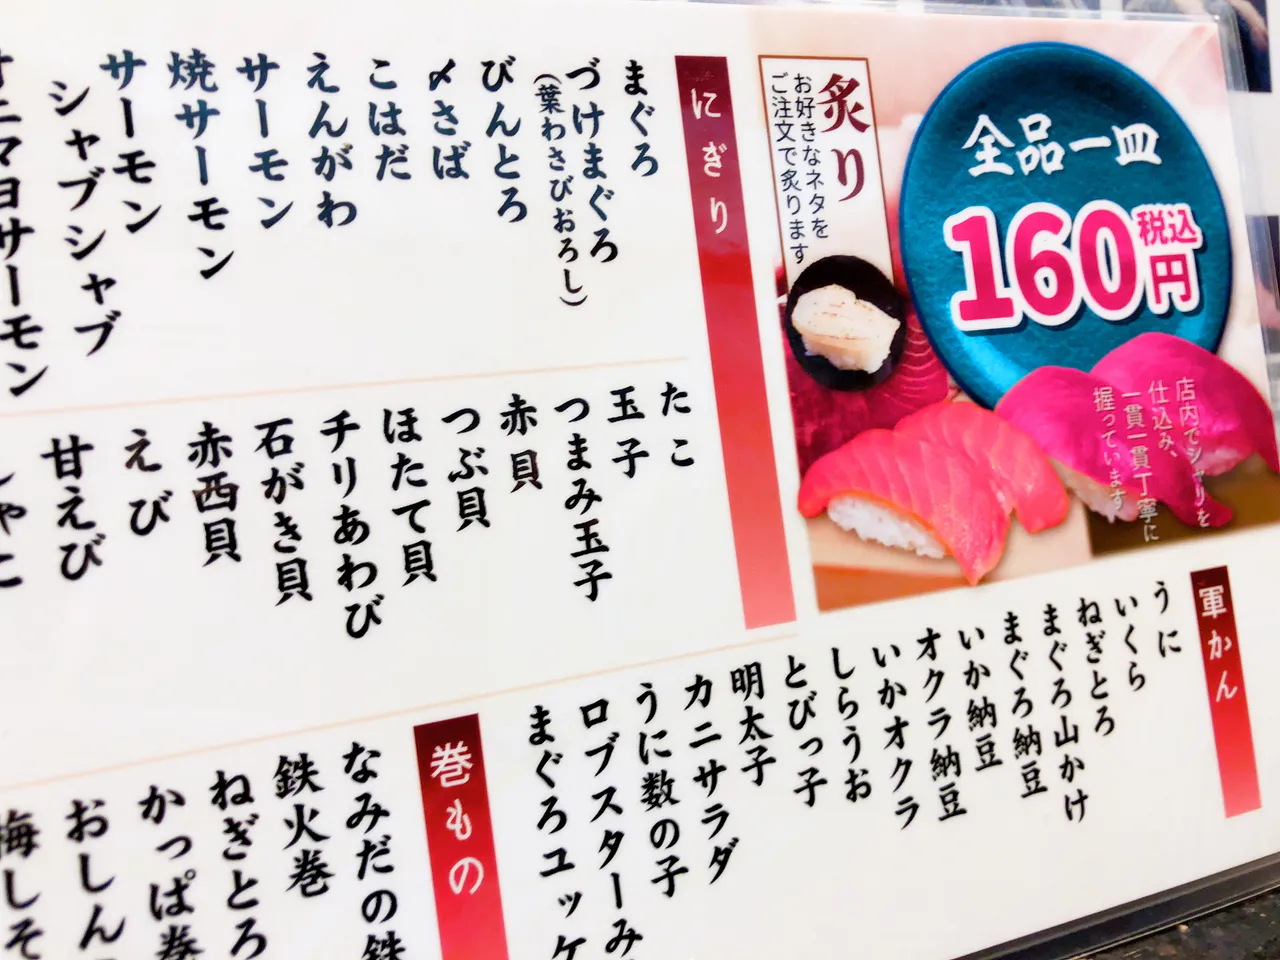 全品一皿
160円
税込
炙り
お好きなネタを
ご注文で炙ります
店内でシャリを
仕込み、
一貫一貫丁寧に
握っています
にぎり
まぐろ
づけまぐろ
(葉わさびおろし)
びんとろ
〆さば
こはだ
えんがわ
サーモン
焼サーモン
サーモン
シャブシャブ
マヨサーモン
たこ
玉子
つまみ玉子
赤貝
つぶ貝
ほたて貝
チリあわび
石がき貝
赤西貝
えび
甘えび
軍かん
うに
いくら
ねぎとろ
まぐろ山かけ
まぐろ納豆
いか納豆
オクラ納豆
いかオクラ
しらうお
とびっ子
明太子
カニサラダ
うに数の子
ロブスターみ
まぐろユッケ
巻もの
なみだの鉄
鉄火巻
ねぎとろ
かっぱ巻
おしん
梅しそ